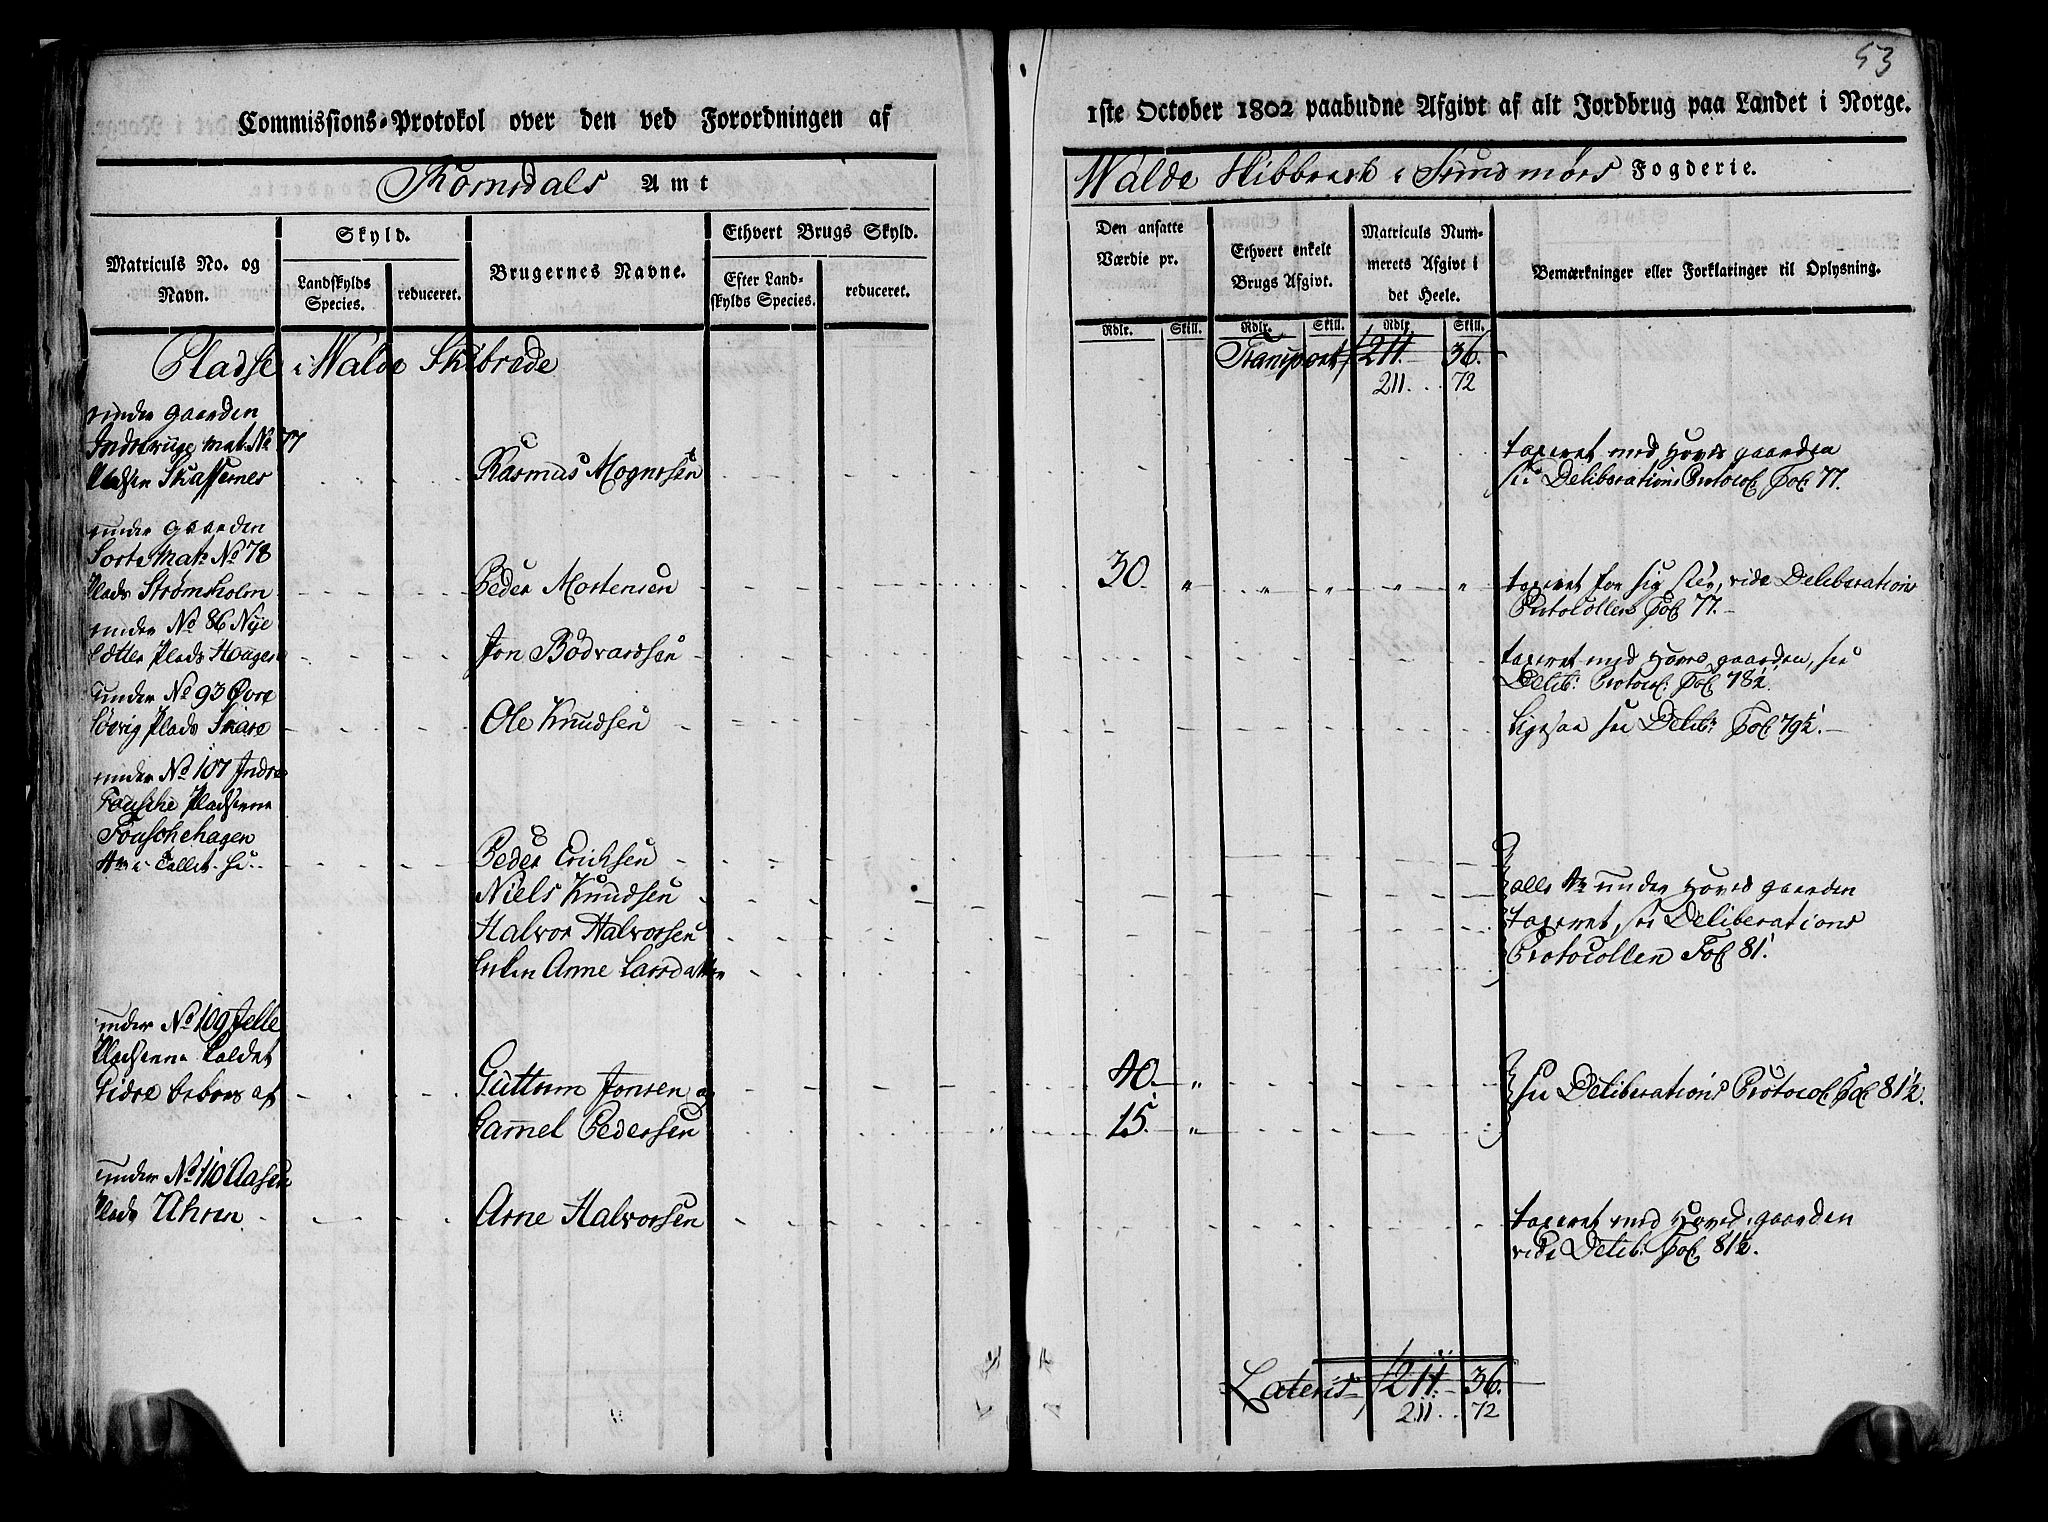 53
Commissions-Protokol over den ved Forordningen af
1ste October 1802 paabudne Afgivt af alt Jordbrug paa Landet i Norge.
Romsdals Amt
Walde Skibbrede i Sundmørs Fogderie.
Matriculs No. og Navn.
Skyld.
Landskylds Species.
reduceret.
Brugernes Navne.
Ethvert Brugs Skyld.
Efter Landskylds Species.
reduceret.
Den ansatte Værdie pr.
Ethvert enkelt Brugs Afgivt.
Matriculs Nummerets Afgivt i det Heele.
Bemærkninger eller Forklaringer til Oplysning.
Rdlr. Skill. Rdlr. Skill. Rdlr. Skill.
Transport 211. 36.
211. 72
Pladse i Walde Skibrede
under gaarden
Indreviige mat. No 77
Pladsen Skafsernes Rasmus Mognesen taxeret med Hoved gaarden
see Deliberations Protocol Fol. 77.
under gaarden
Sorte Mat. No 78
Plads Strømsholm Peder Mortensen 30 " " " " " taxeret for sig selv, vide Deliberations
Protocollen Fol. 77.
under No 86 Nye
Sætter Plads Hougen Jon Bodvardsen taxeret med Hoved gaarden, see
Delib: Protocol: Fol. 78½.
under No 93 Øvre
Søvig Plads Skare Ole Knudsen Ligesaa see Delib: Fol. 79½.
under No 107 Indre
Fousche Pladsene
Fouschehagen
4re i Tallet. se Peder Erichsen
Niels Knudsen alle 4re under Hoved gaarden
Halvor Halvorsen taxeret, see Deliberations
Enken Anne Larsdatter Protocollen Fol. 81.
under No 109 Jelle
Pladsene kaldet
Guttorm Jonsen og 40 " see Deliberations Protocol Fol. 81½.
Samel Pedersen 15 "
under No 110 Aasen
Plads Uhren Arne Halvorsen taxeret med Hoved gaarden
vide Delib: Fol. 81½.
Lateris 211. 36.
211. 72